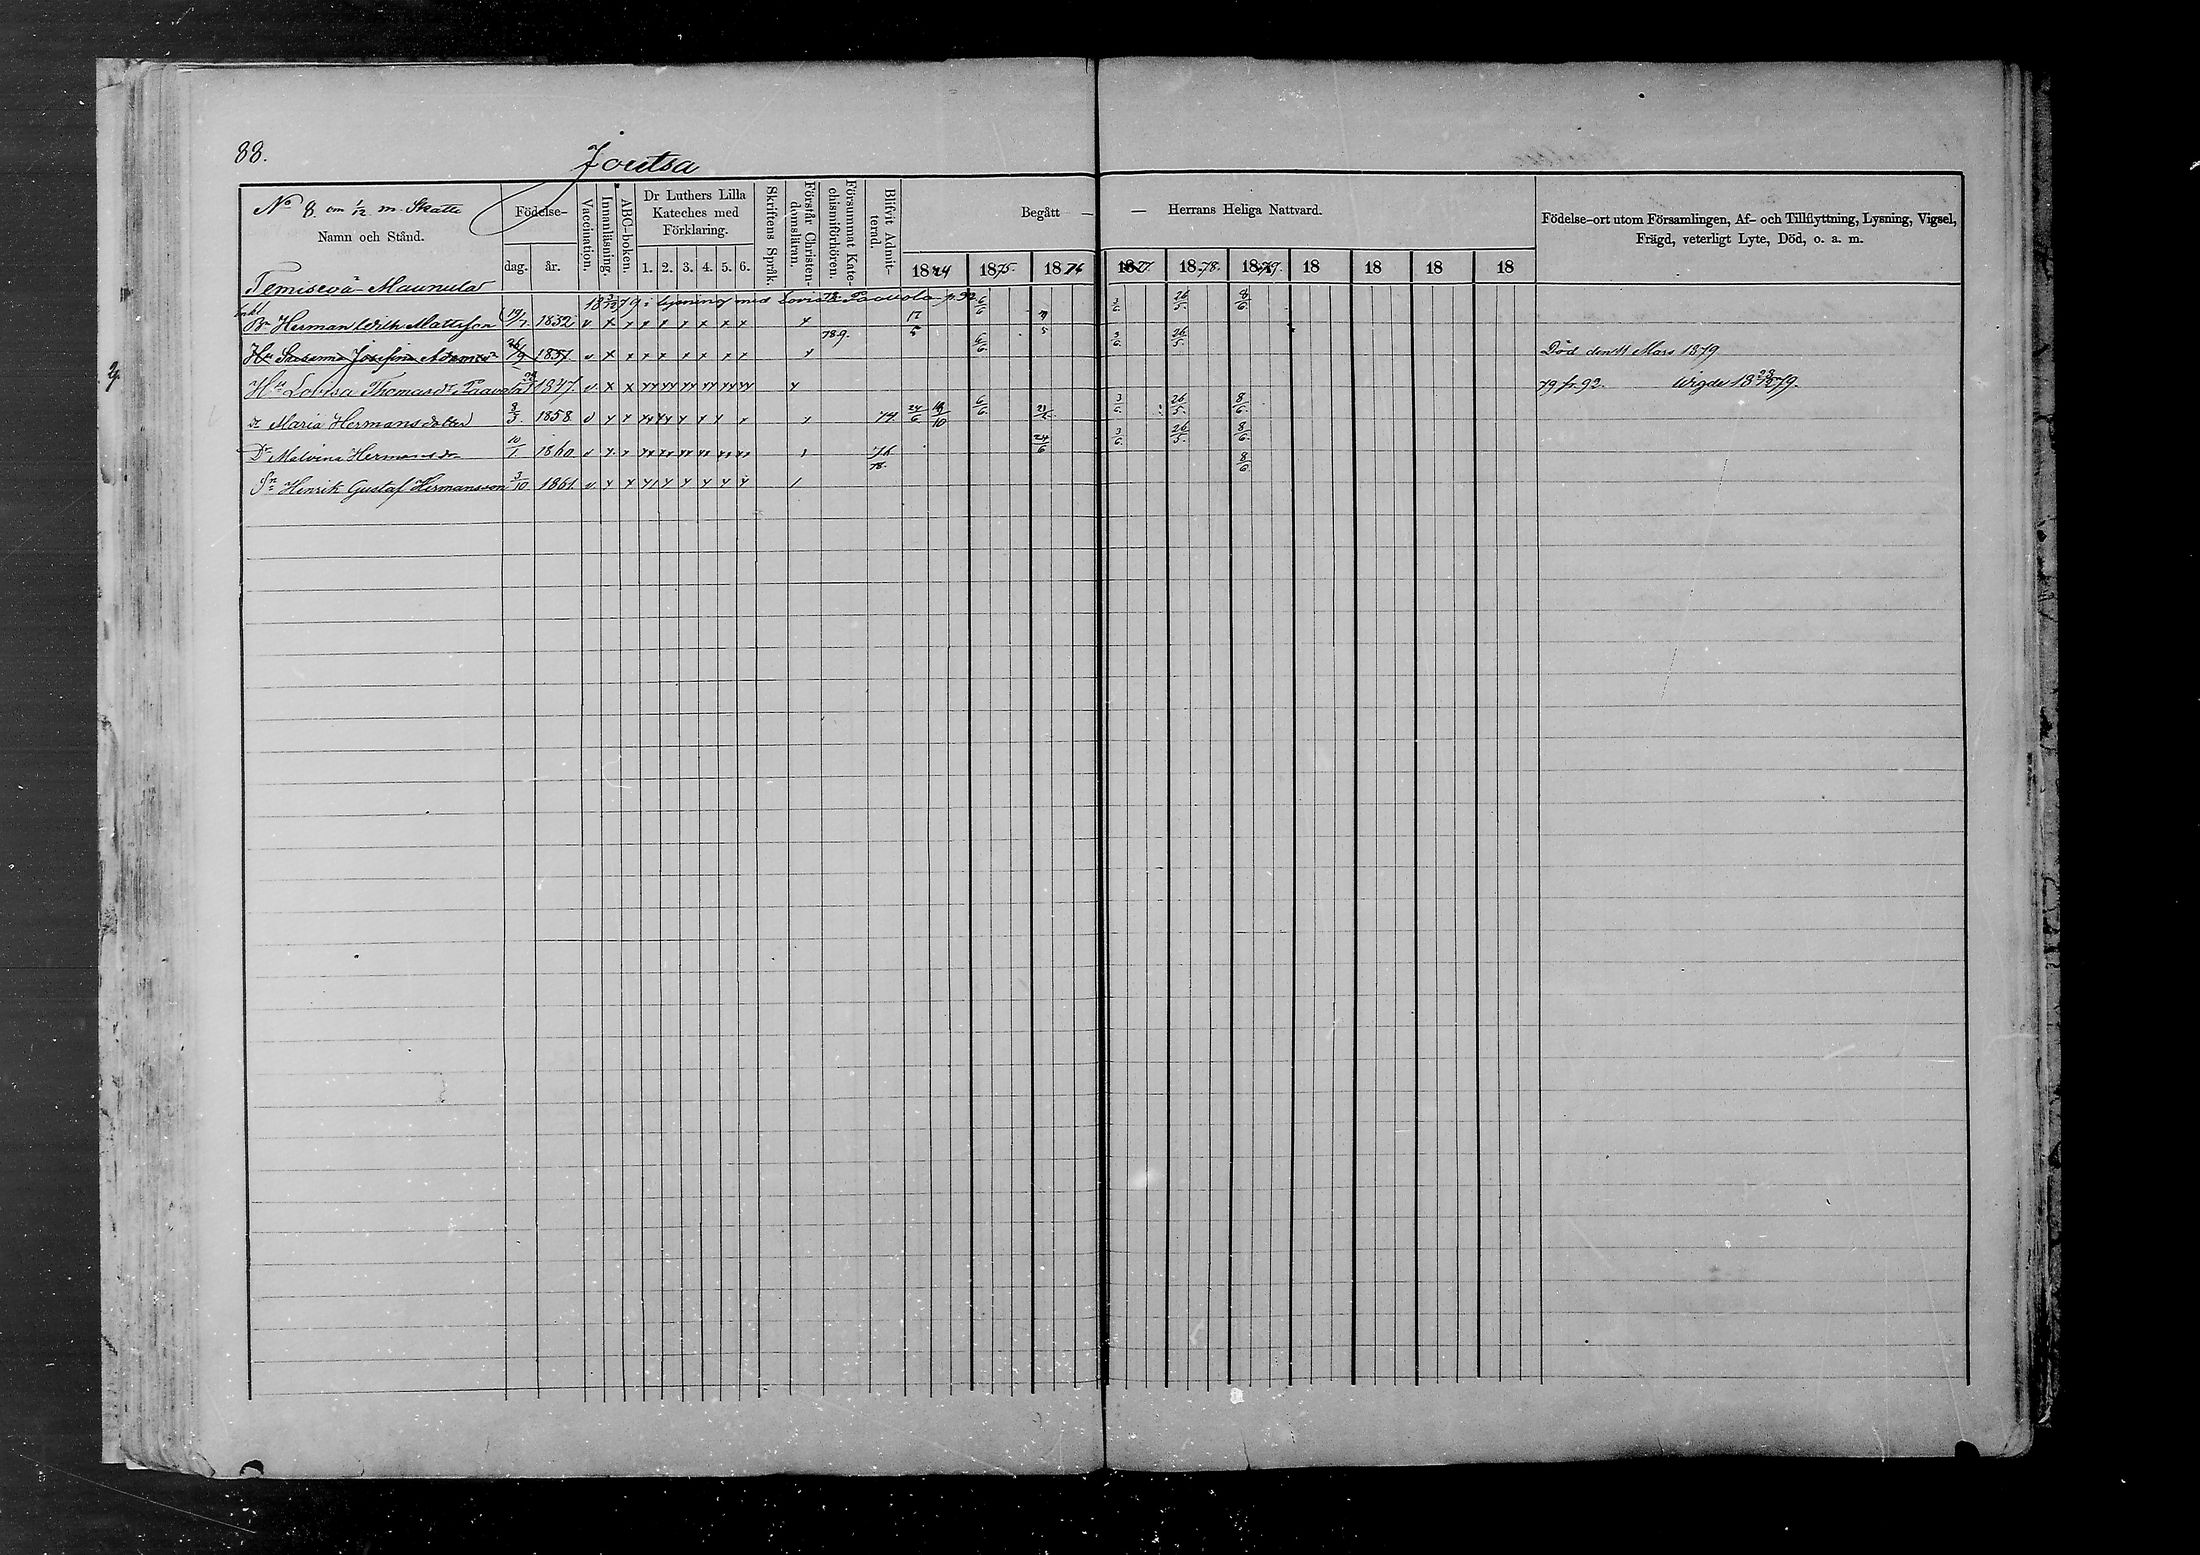 88.
Joutsa
No 8. om 1/12 m. Skatte
Namn och Stånd.
Födelse-
dag. år.
Vaccination.
Innanläsning.
ABC-boken.
Dr Luthers Lilla Kateches med Förklaring.
1. 2. 3. 4. 5. 6.
Skriftens Språk.
Förstår Christendomsläran.
Försummat Katechismiförhören.
Blifvit Admitterad.
Begått — — Herrans Heliga Nattvard.
1874 1875. 1876 1877. 1878. 1879. 18 18 18 18
Födelse-ort utom Församlingen, Af- och Tillflyttning, Lysning, Vigsel,
Frägd, veterligt Lyte, Död, o. a. m.
Temisevä Maunula
i lysning med Lovisa Paavola fr. 92
Bn Herman Wilh Mattsson 19/7 1832 v x x x x x x x x x 17/5 6/6 3/6 26/5. 8/6.
Hu Susanna Josefina Adamsdr 26/9 1831 v x x x x x x x x x 6/6 3/6. 26/5. Död den 11 Mars 1879
Hu Lovisa Thomasdr Paavola 1847 v x x xx xx xx xx xx xx x 79 fr. 92. Wigde 18 28/12 79.
dr Maria Hermansdotter 3/3. 1858 74 24/6 6/6 3/6. 26/5. 8/6.
Dr Malvina Hermansdr 10/1 1860 76 24/6 3/6. 26/5. 8/6.
Sn Henrik Gustaf Hermansson 3/10 1861 78. 8/6